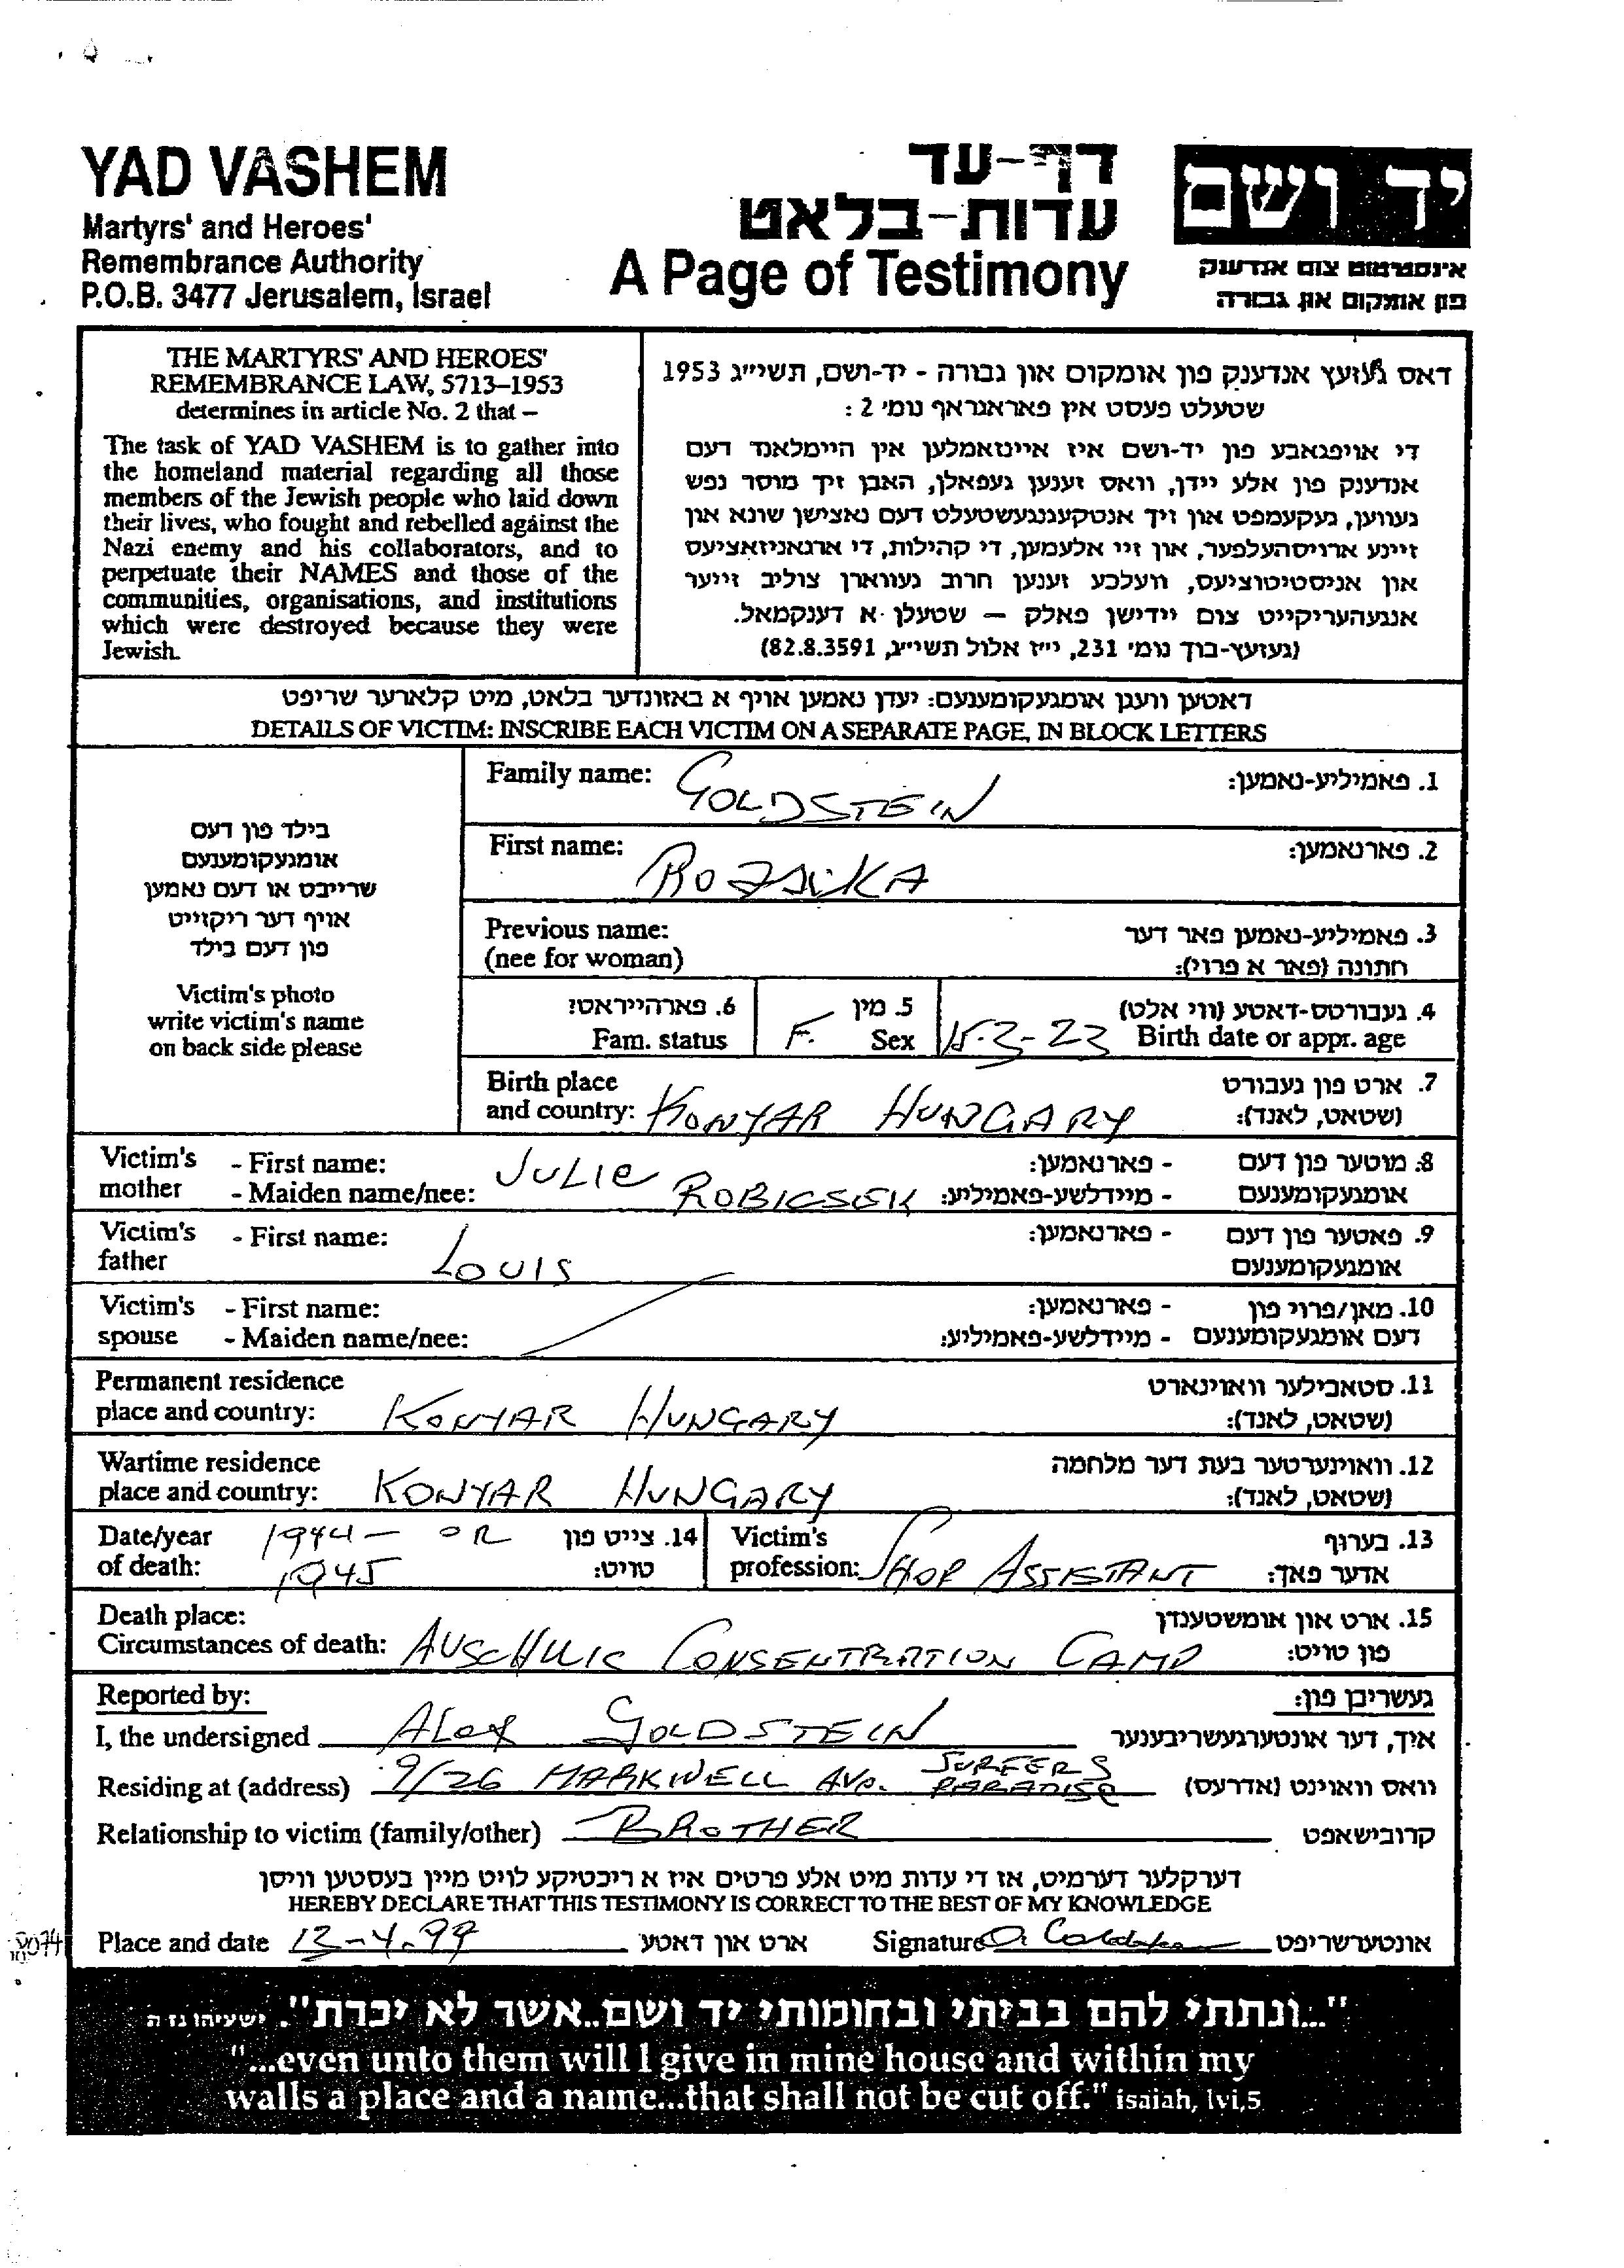 YAD VASHEM
Martyrs' and Heroes'
Remembrance Authority
P.O.B. 3477 Jerusalem, Israel
דף-עד
עדות-בלאט
A Page of Testimony
יד ושם
אינסטיטוט צום אנדענק
פון אומקום און גבורה
THE MARTYRS' AND HEROES'
REMEMBRANCE LAW, 5713–1953
determines in article No. 2 that –
The task of YAD VASHEM is to gather into
the homeland material regarding all those
members of the Jewish people who laid down
their lives, who fought and rebelled against the
Nazi enemy and his collaborators, and to
perpetuate their NAMES and those of the
communities, organisations, and institutions
which were destroyed because they were
Jewish.
דאס געזעץ אנדענק פון אומקום און גבורה - יד-ושם, תשי״ג 1953
שטעלט פעסט אין פאראגראף נומ׳ 2 :
די אויפגאבע פון יד-ושם איז איינזאמלען אין היימלאנד דעם
אנדענק פון אלע יידן, וואס זענען געפאלן, האבן זיך מוסר נפש
געווען, געקעמפט און זיך אנטקעגנגעשטעלט דעם נאצישן שונא און
זיינע ארויסהעלפער, און זיי אלעמען, די קהילות, די ארגאניזאציעס
און אניסטיטוציעס, וועלכע זענען חרוב געווארן צוליב זייער
אנגעהעריקייט צום יידישן פאלק – שטעלן א דענקמאל.
(געזעץ-בוך נומ׳ 231, י״ז אלול תשי״ג, 82.8.3591)
דאטען וועגן אומגעקומענעם: יעדן נאמען אויף א באזונדער בלאט, מיט קלארער שריפט
DETAILS OF VICTIM: INSCRIBE EACH VICTIM ON A SEPARATE PAGE, IN BLOCK LETTERS
בילד פון דעם
אומגעקומענעם
שרייבט או דעם נאמען
אויף דער ריקזייט
פון דעם בילד
Victim's photo
write victim's name
on back side please
Family name: GOLDSTEIN 1. פאמיליע-נאמען:
First name: ROZSIKA 2. פארנאמען:
Previous name: 3. פאמיליע-נאמען פאר דער
(nee for woman) חתונה (פאר א פרוי):
6. פארהייראט? 5. מין 4. געבורטס-דאטע (ווי אלט)
Fam. status F. Sex 15-3-23 Birth date or appr. age
Birth place 7. ארט פון געבורט
and country: KONYAR HUNGARY (שטאט, לאנד):
Victim's - First name: JULIE - פארנאמען: 8. מוטער פון דעם
mother - Maiden name/nee: ROBICSEK - מיידלשע-פאמיליע: אומגעקומענעם
Victim's - First name: LOUIS - פארנאמען: 9. פאטער פון דעם
father אומגעקומענעם
Victim's - First name: - פארנאמען: 10. מאן/פרוי פון
spouse - Maiden name/nee: - מיידלשע-פאמיליע: דעם אומגעקומענעם
Permanent residence 11. סטאבילער וואוינארט
place and country: KONYAR HUNGARY (שטאט, לאנד):
Wartime residence 12. וואוינערטער בעת דער מלחמה
place and country: KONYAR HUNGARY (שטאט, לאנד):
Date/year 1944 - OR 14. צייט פון Victim's 13. בערוף
of death: 1945 טויט: profession: SHOP ASSISTANT אדער פאך:
Death place: 15. ארט און אומשטענדן
Circumstances of death: AUSCHWIC CONSENTRATION CAMP פון טויט:
Reported by: געשריבן פון:
I, the undersigned ALEX GOLDSTEIN איך, דער אונטערגעשריבענער
Residing at (address) 9/26 MARKWELL AVE. SURFERS PARADISE וואס וואוינט (אדרעס)
Relationship to victim (family/other) BROTHER קרובישאפט
דערקלער דערמיט, אז די עדות מיט אלע פרטים איז א ריכטיקע לויט מיין בעסטען וויסן
HEREBY DECLARE THAT THIS TESTIMONY IS CORRECT TO THE BEST OF MY KNOWLEDGE
Place and date 13-4.99 ארט און דאטע Signature אונטערשריפט
"...ונתתי להם בביתי ובחומותי יד ושם...אשר לא יכרת". ישעיהו נו ה
"...even unto them will I give in mine house and within my
walls a place and a name...that shall not be cut off." isaiah, lvi,5